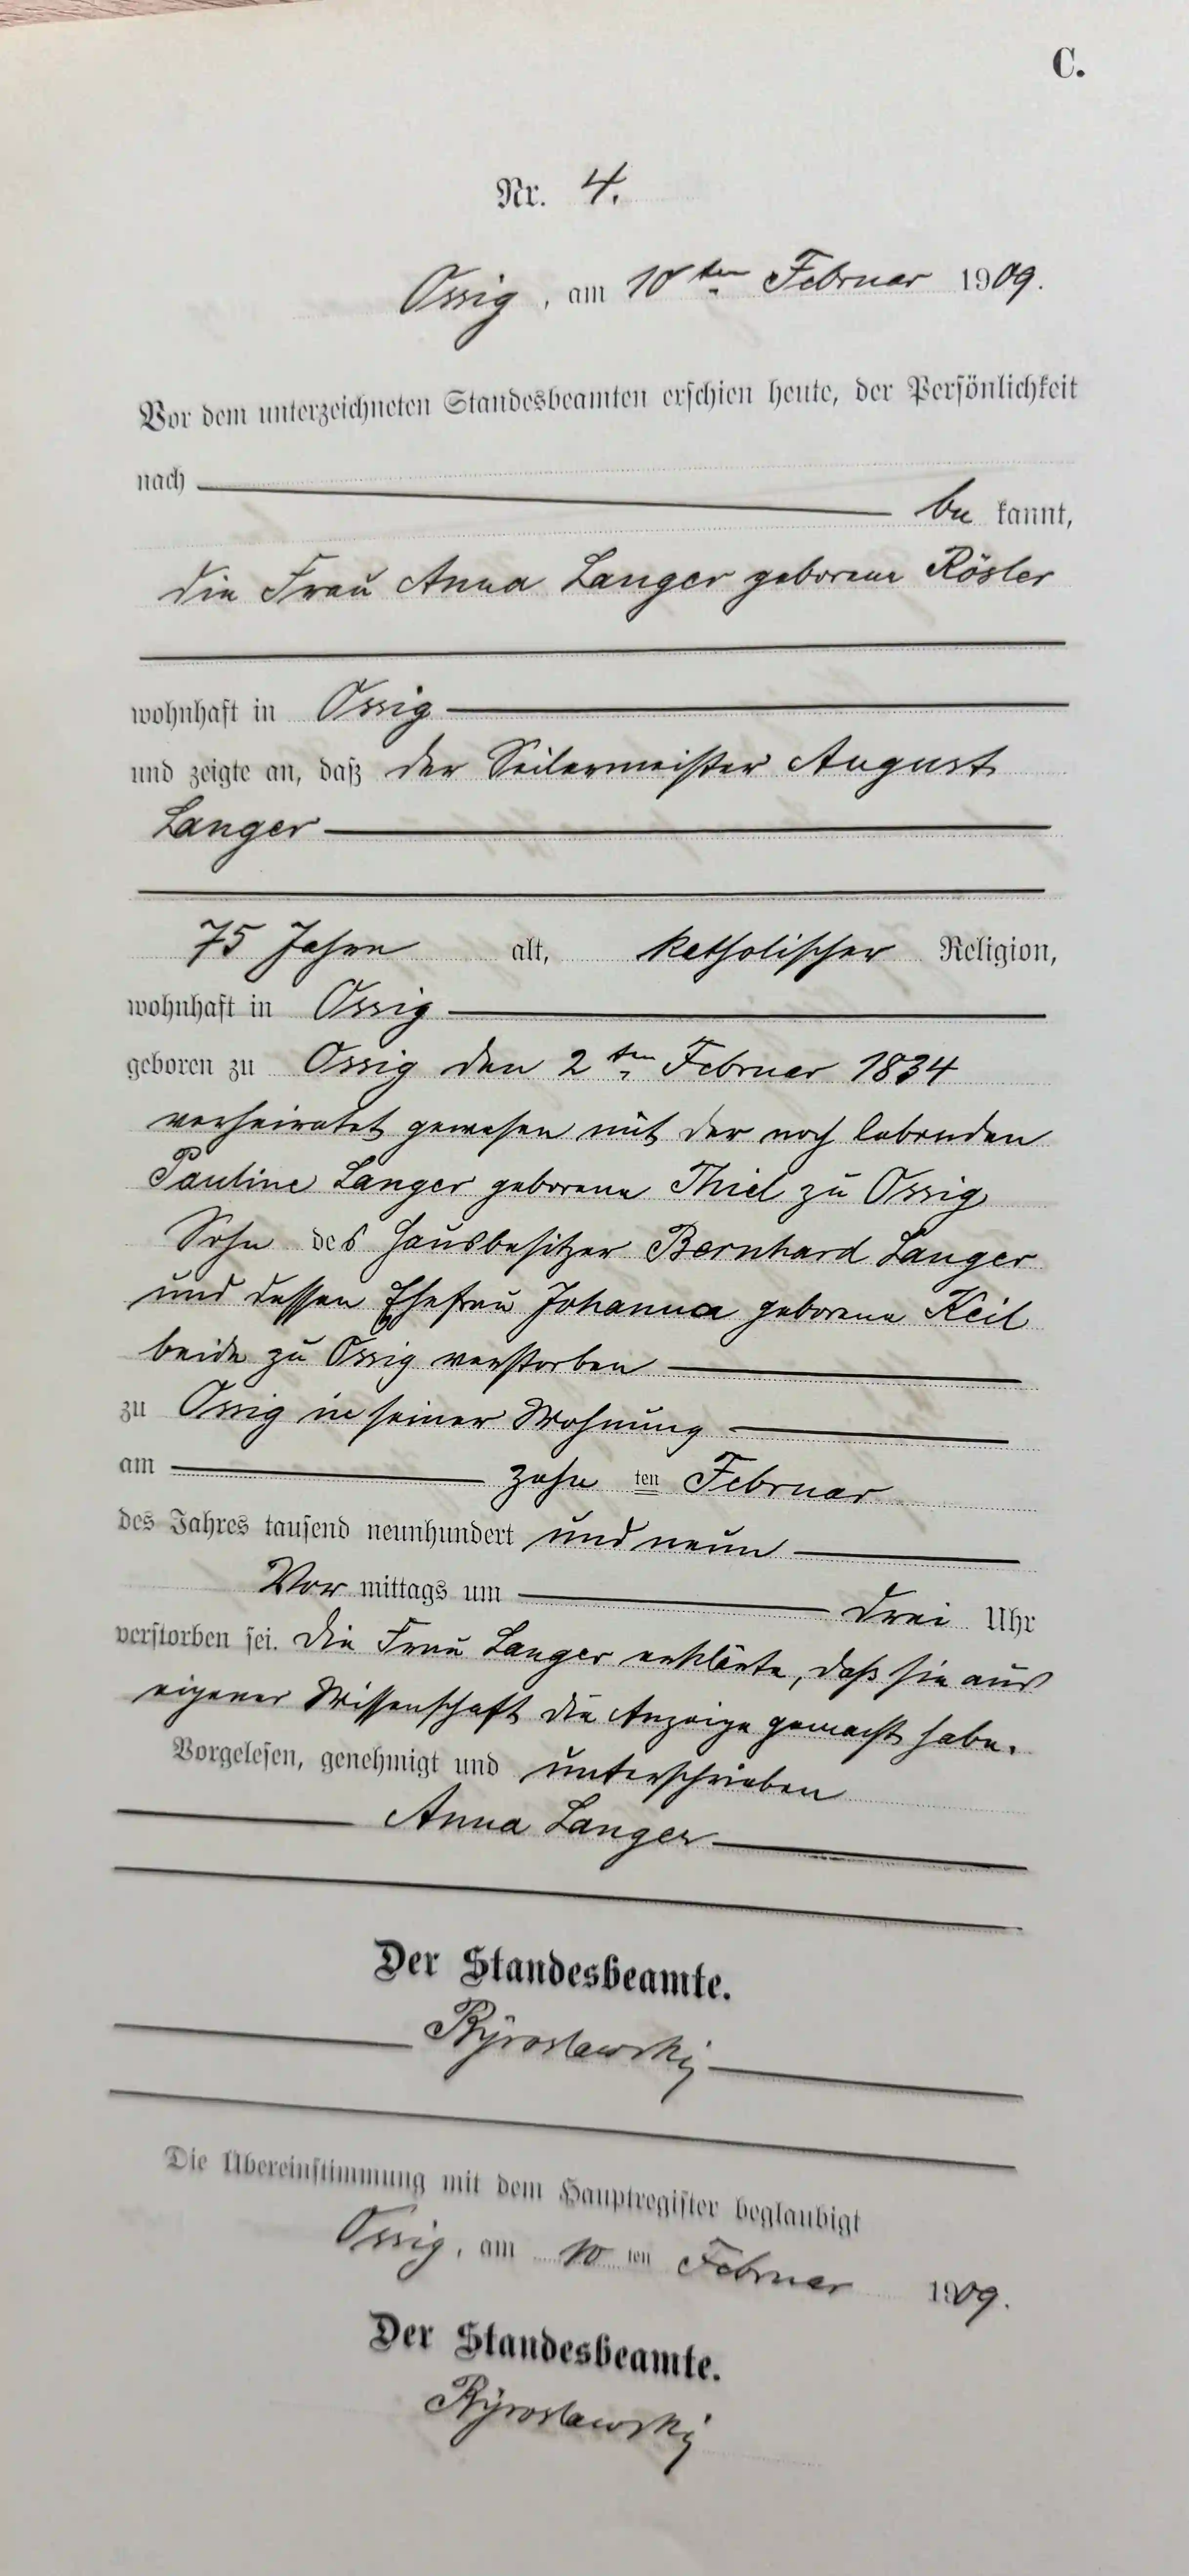 C.
Nr. 4.
Ossig, am 10ten Februar 1909.
Vor dem unterzeichneten Standesbeamten erschien heute, der Persönlichkeit
nach
be kannt,
die Frau Anna Langer geborene Rösler
wohnhaft in Ossig
und zeigte an, daß der Seilermeister August
Langer
75 Jahre alt, katholischer Religion,
wohnhaft in Ossig
geboren zu Ossig den 2ten Februar 1834
verheiratet gewesen mit der noch lebenden
Pauline Langer geborene Thiel zu Ossig
Sohn des Hausbesitzer Bernhard Langer
und dessen Ehefrau Johanna geborene Keil
beide zu Ossig verstorben
zu Ossig in seiner Wohnung
am zehn ten Februar
des Jahres tausend neunhundert und neun
Vor mittags um drei Uhr
verstorben sei. Die Frau Langer erklärte, daß sie aus
eigener Wissenschaft die Anzeige gemacht habe.
Vorgelesen, genehmigt und unterschrieben
Anna Langer
Der Standesbeamte.
Die Übereinstimmung mit dem Hauptregister beglaubigt
Ossig, am 10 ten Februar 1909.
Der Standesbeamte.